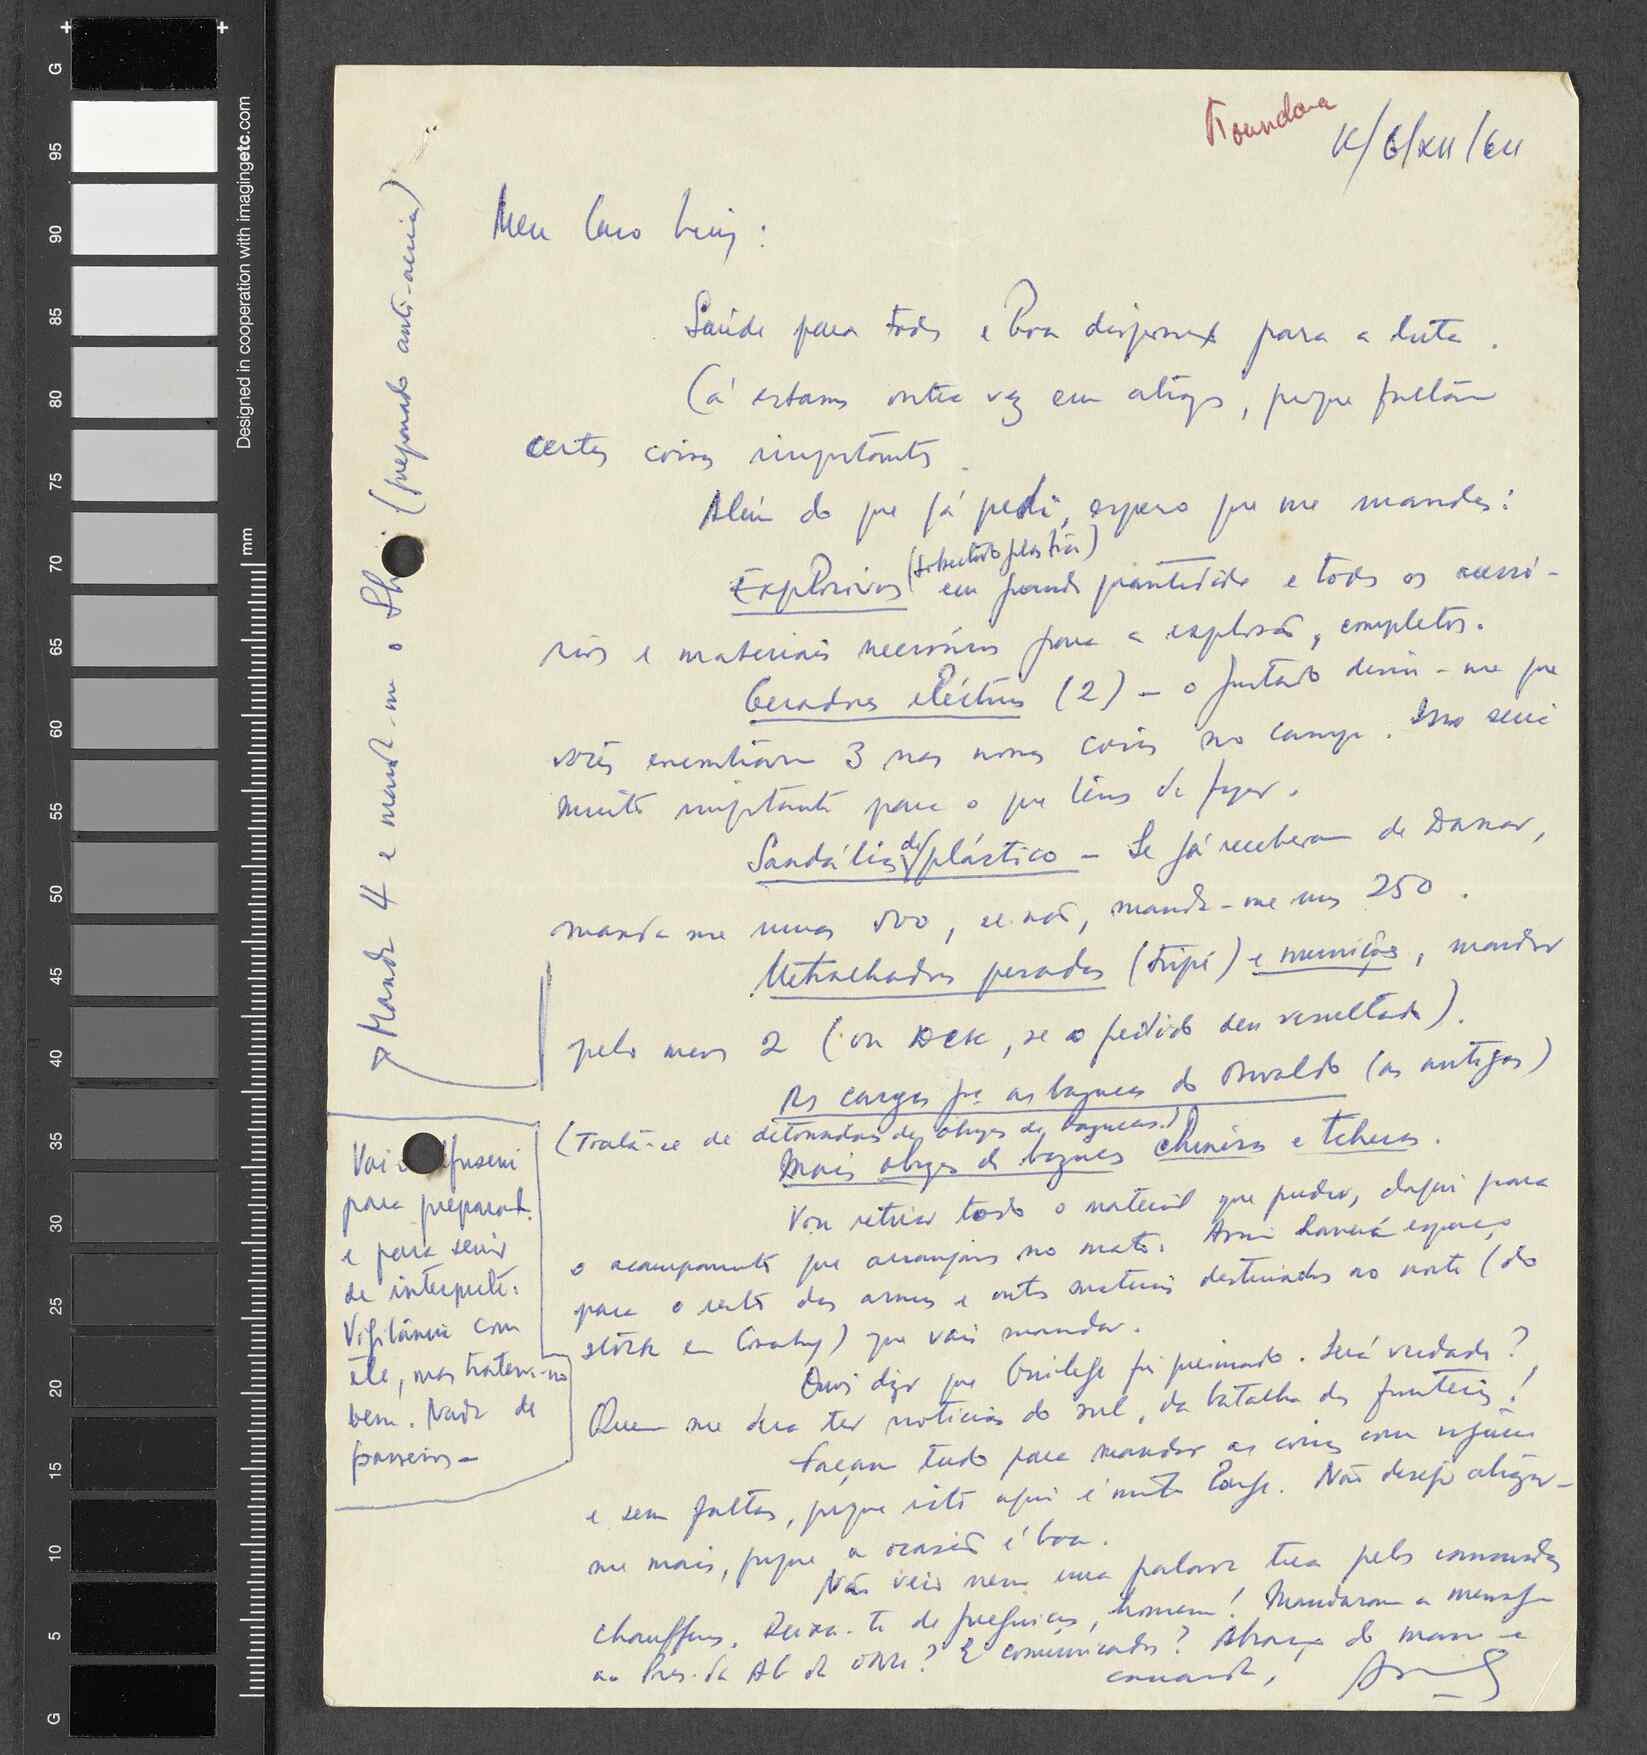 K/6/XII/64
Meu Caro Luiz:
Saúde para todos e boa disposição para a luta.
Cá estamos outra vez em atraso, porque faltam
certas coisas importantes.
Além do que já pedi, espero que me mandes:
Explosivos (sobretudo plástico) em grande quantidade e todos os acessó-
rios e materiais necessários para a explosão, completos.
Geradores eléctricos (2) – o Furtado disse-me que
vocês encontraram 3 nas nossas coisas no campo. Isso seria
muito importante para o que temos de fazer.
Sandálias de plástico – Se já receberam de Dakar,
manda-me umas 500, se não, manda-me umas 250.
Metralhadoras pesadas (tripé) e munições, mandar
pelo menos 2 (ou DCK, se o pedido deu resultado).
As cargas pª as bazucas do Osvaldo (as antigas)
(Trata-se de detonadores de obuzes de bazucas.)
Mais obuzes de bazucas chinesas e tchecas.
Vou retirar todo o material que puder, daqui para
o acampamento que arranjamos no mato. Assim haverá espaço
para o resto das armas e outros materiais destinados ao norte (do
stock em Conakry) que vais mandar.
Ouvi dizer que Guileje foi queimado. Será verdade?
Quem me dera ter notícias do sul, da batalha das fronteiras!
Façam tudo para mandar as coisas com urgência
e sem faltas, porque isto aqui é muito longe. Não desejo atrazar-
me mais, porque a ocasião é boa.
Não veio nem uma palavra tua pelos camaradas
chauffeurs. Deixa-te de preguiças, homem! Mandaram a mensagem
ao Pres. da AG da ONU? E comunicados? Abraço do mano e
camarada,
Manda 4 e manda-me o (preparado anti-aérea)
Vai
para preparad.
e para servir
de intérprete.
Vigilância com
ele, mas tratem-no
bem. Nada de
passeios –
Designed in cooperation with imagingetc.com
mm
G
95
90
85
80
75
70
65
60
55
50
45
40
35
30
25
20
15
10
5
G